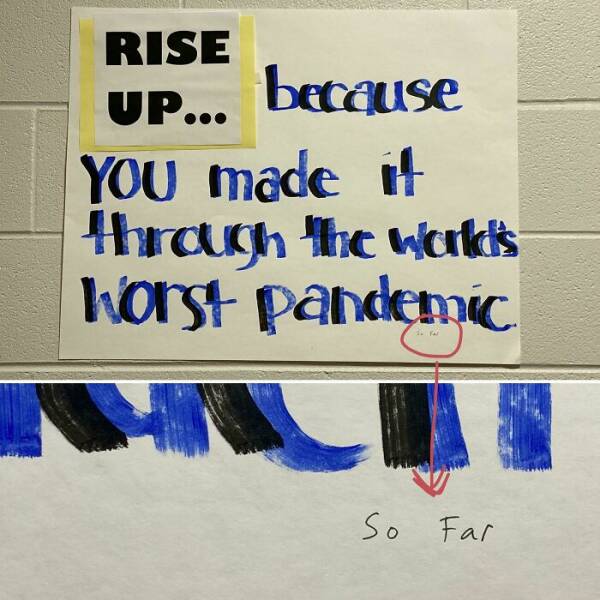 RISE
UP... because
YOU made it
through the world's
worst pandemic
So Far
So Far